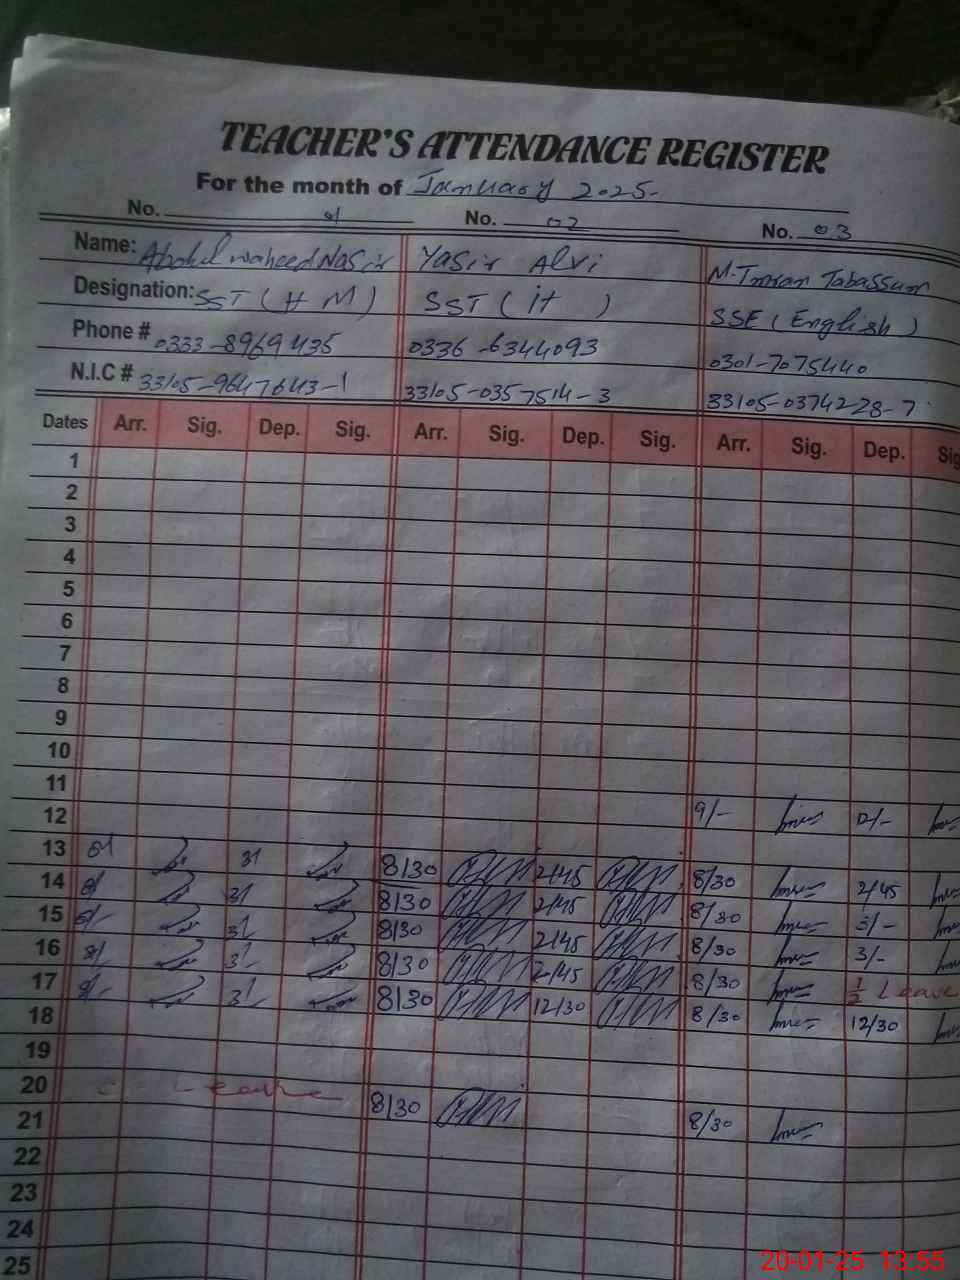 TEACHER'S ATTENDANCE REGISTER
For the month of January 2025-
No. 01 No. 02 No. 03
Name: Abdul waheed Nasir Yasir Alvi M. Imran Tabassum
Designation: SST (H M) SST ( it ) SSE (English)
Phone # 0333-8969435 0336-6344093 0301-7075440
N.I.C # 33105-9647643-1 33105-0357514-3 33105-0374228-7
Dates Arr. Sig. Dep. Sig. Arr. Sig. Dep. Sig. Arr. Sig. Dep. Sig
1
2
3
4
5
6
7
8
9
10
11
12 9/-
13 8/ 3/ 8/30 2/45 8/30 2/45
14 8/ 3/ 8/30 2/45 8/30 3/-
15 8/- 3/ 8/30 2/45 8/30 3/-
16 8/- 3/- 8/30 2/45 8/30 1/2 Leave
17 8/- 3/ 8/30 12/30 8/30 12/30
18
19
20 C - Leave 8/30 8/30
21
22
23
24
25
20-01-25 13:55